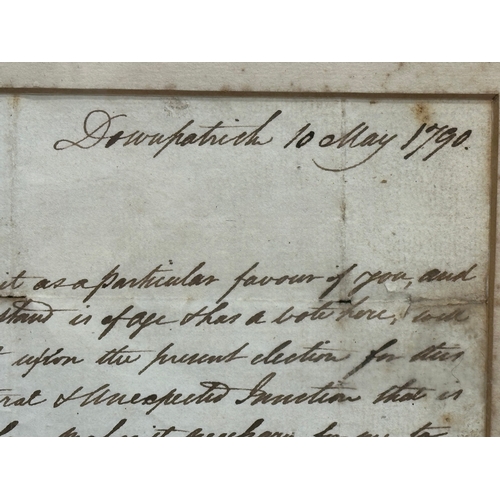 Downpatrick 10 May 1790.
it as a particular favour of you, and
stand is of age & has a vote here, will
upon the present election for this
& Unexpected Junction that is
makes it necessary for me to